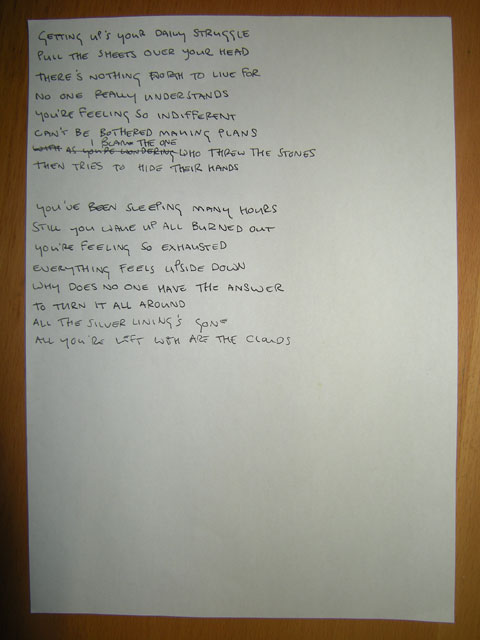 GETTING UP'S YOUR DAILY STRUGGLE
PULL THE SHEETS OVER YOUR HEAD
THERE'S NOTHING WORTH TO LIVE FOR
NO ONE REALLY UNDERSTANDS
YOU'RE FEELING SO INDIFFERENT
CAN'T BE BOTHERED MAKING PLANS
I BLAME THE ONE
WITH AS YOU'RE WONDERING WHO THREW THE STONES
THEN TRIES TO HIDE THEIR HANDS
YOU'VE BEEN SLEEPING MANY HOURS
STILL YOU WAKE UP ALL BURNED OUT
YOU'RE FEELING SO EXHAUSTED
EVERYTHING FEELS UPSIDE DOWN
WHY DOES NO ONE HAVE THE ANSWER
TO TURN IT ALL AROUND
ALL THE SILVER LINING'S GONE
ALL YOU'RE LEFT WITH ARE THE CLOUDS